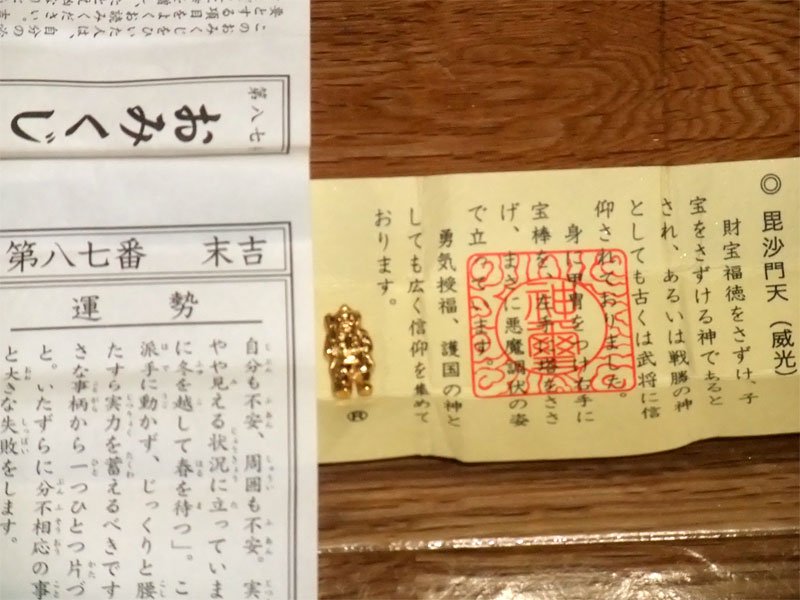 このおみくじをひいた人は、
要とする項目をよくお読みください。
第八七
おみくじ
第八七番 末吉
運勢
自分も不安、周囲も不安。実
やや見える状況に立っていま
に冬を越して春を待つ」。こ
派手に動かず、じっくりと腰
たすら実力を蓄えるべきです
さな事柄から一つひとつ片づ
と。いたずらに分不相応の事
と大きな失敗をします。
◎毘沙門天(威光)
財宝福徳をさずけ、子
宝をさずける神であると
され、あるいは戦勝の神
としても古くは武将に信
仰されておりました。
身に甲冑をつけ右手に
宝棒を、左手に塔をささ
げ、まさに悪魔調伏の姿
で立っています。
勇気授福、護国の神と
しても広く信仰を集めて
おります。
Ⓡ